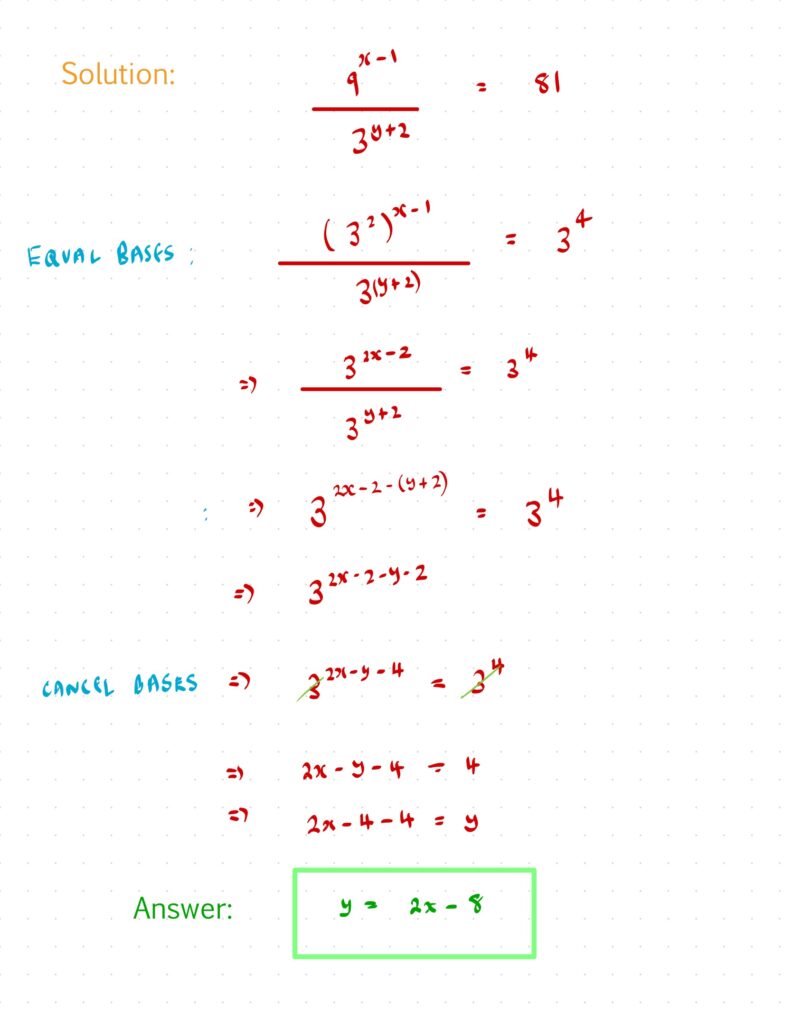 Solution: 9^(x-1) / 3^(y+2) = 81
EQUAL BASES: (3²)^(x-1) / 3^((y+2)) = 3⁴
=> 3^(2x-2) / 3^(y+2) = 3⁴
: => 3^(2x-2-(y+2)) = 3⁴
=> 3^(2x-2-y-2)
CANCEL BASES => 3^(2x-y-4) = 3⁴
=> 2x-y-4 = 4
=> 2x-4-4 = y
Answer: y = 2x-8